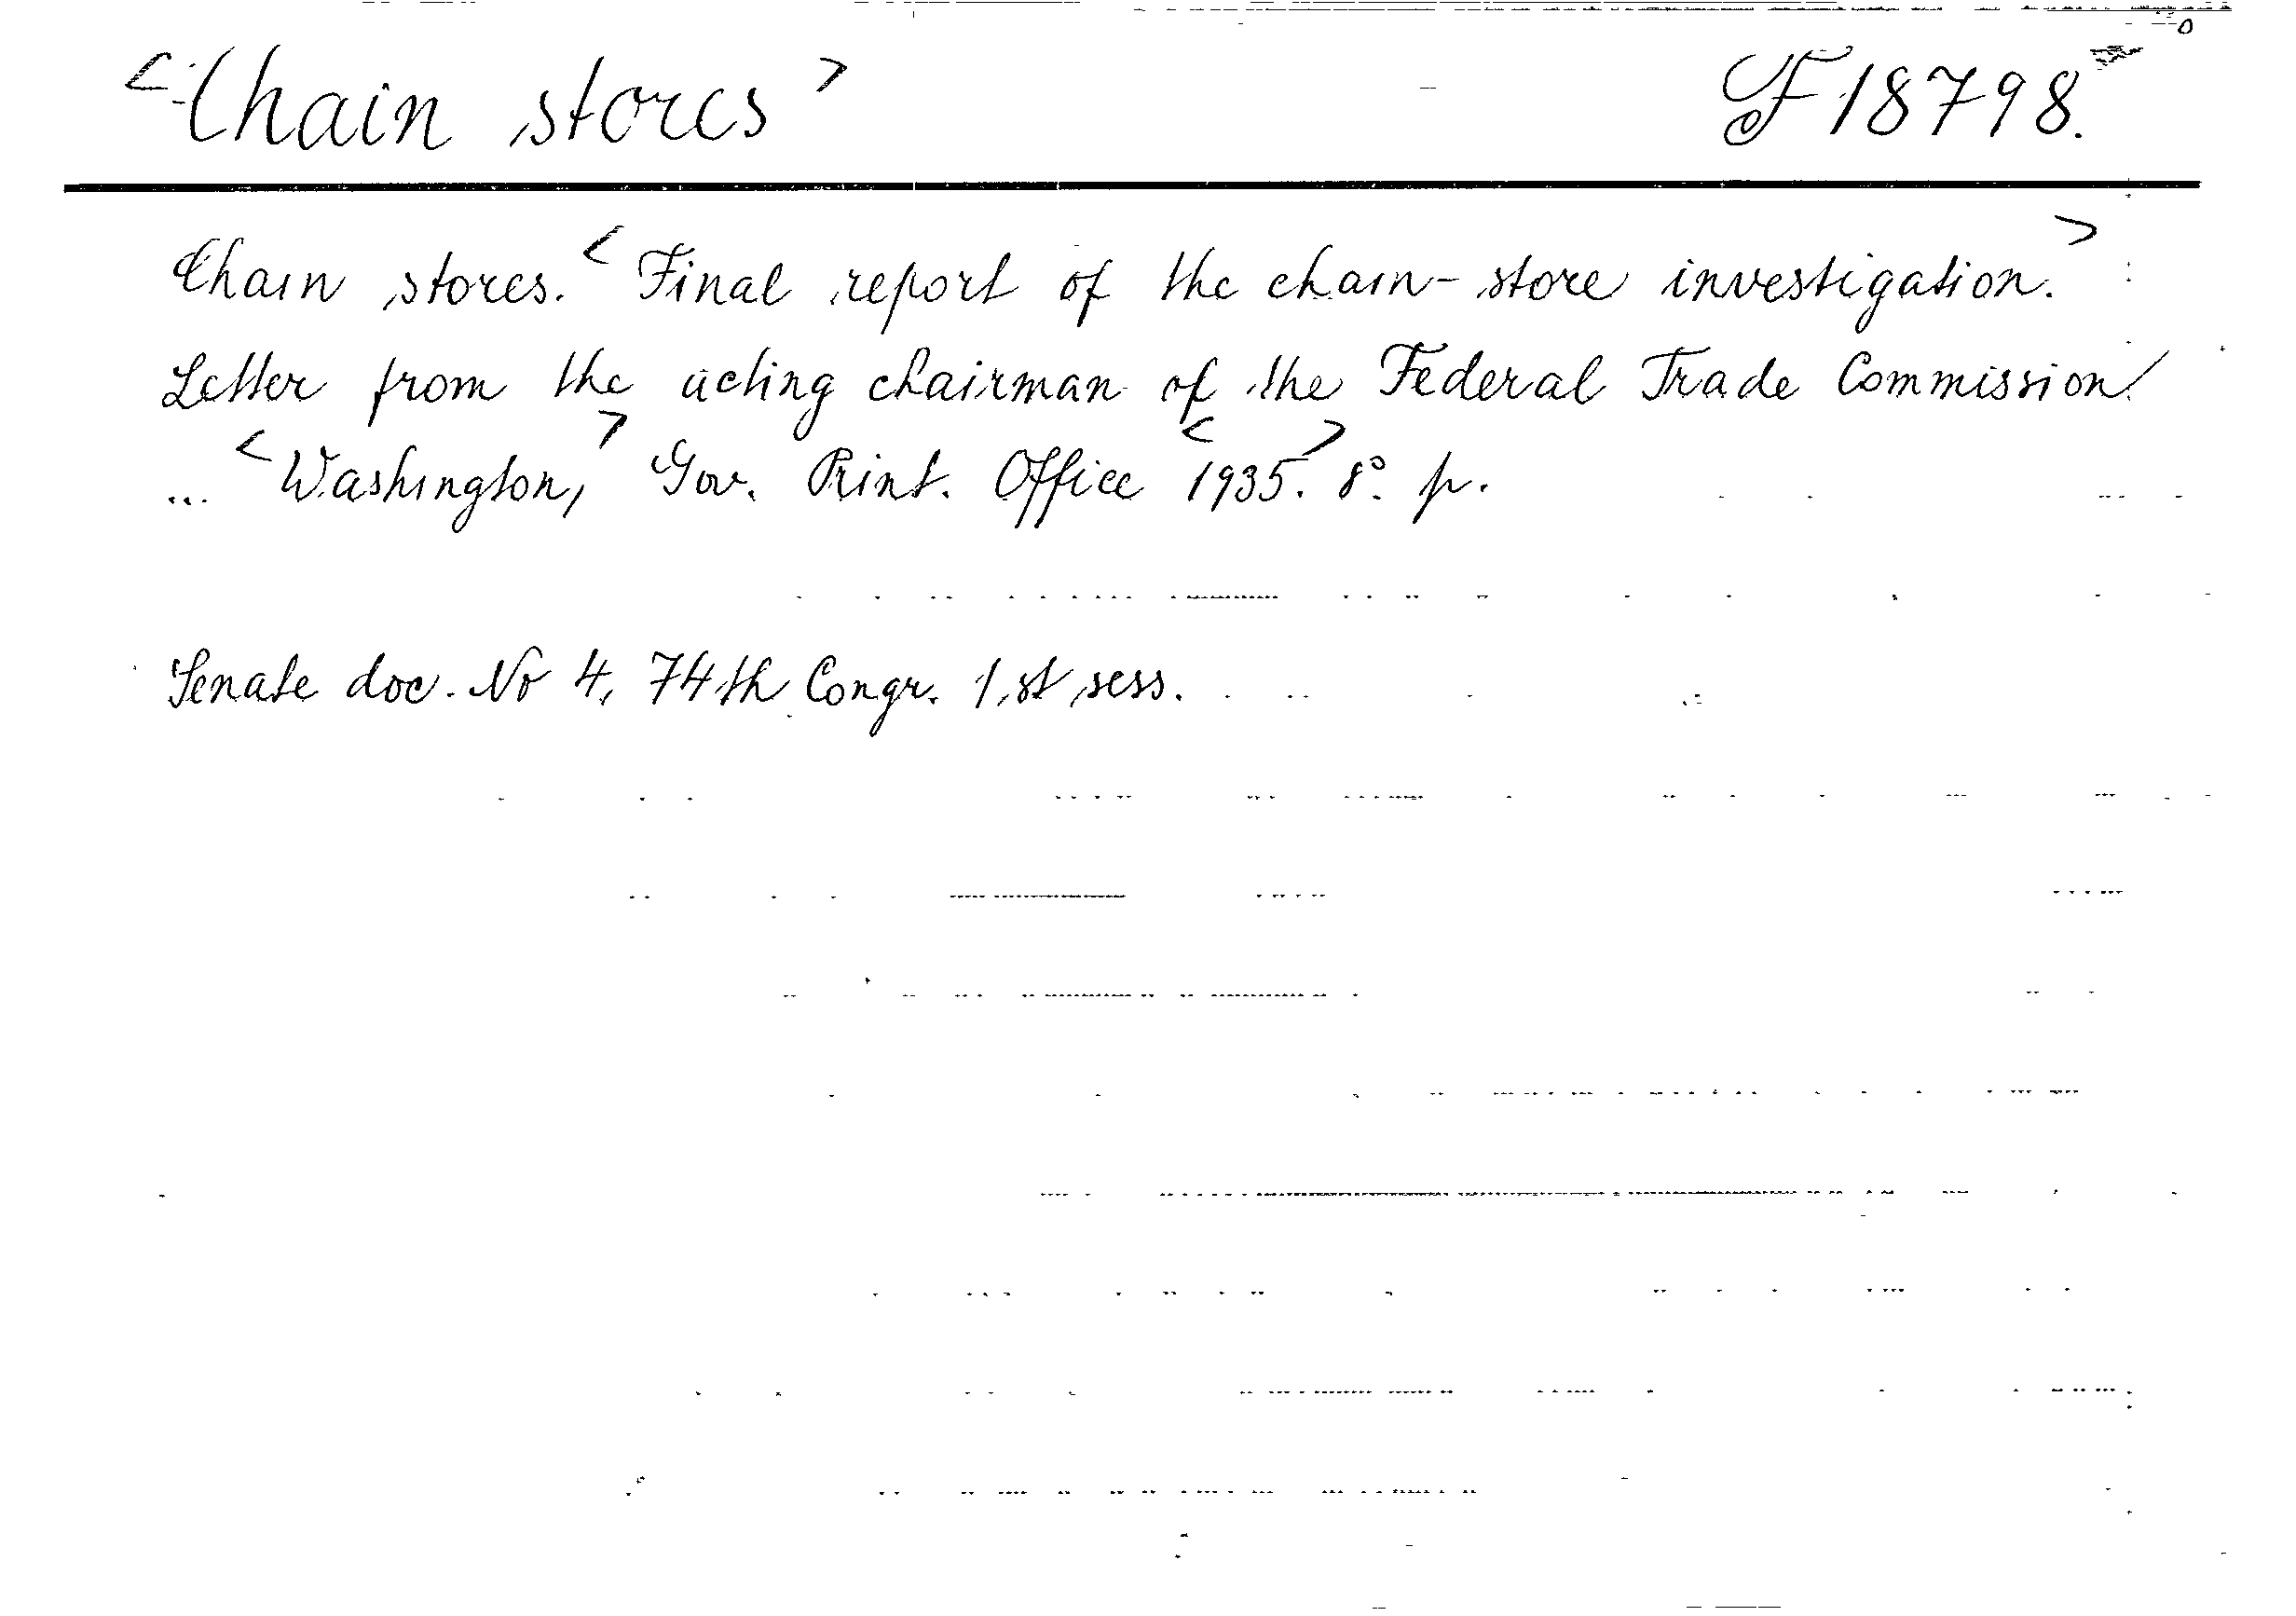 <Chain stores> F 18798.
Chain stores. <Final report of the chain-store investigation.>
Letter from the acting chairman of the Federal Trade Commission
... <Washington,> Gov. Print. Office <1935.> 8° p.
Senate doc. No 4, 74th Congr. 1st sess.